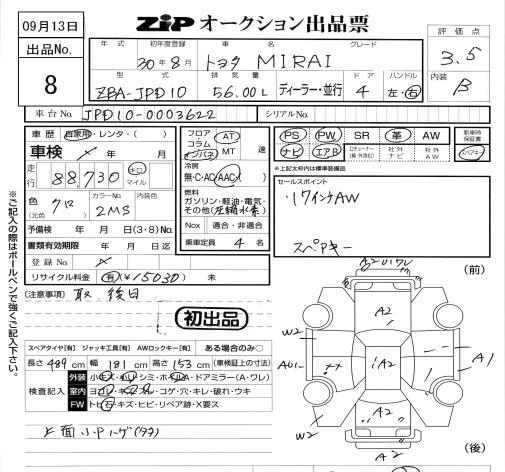 09月13日
ZIP オークション出品票
評価点
出品No.
8
年式 初年度登録 車名 グレード
30年8月 トヨタ MIRAI
3.5
型式 排気量 ディーラー・並行 ドア ハンドル
ZBA-JPD10 56.00L 4 左・右
内装
B
車台No. JPD10-0003622 シリアルNo.
車歴 自家用・レンタ・( )
車検 年 月
走行 88,730 キロ マイル
色 クロ (元色) カラーNo. 2MS 内装色
予備検 年 月 日(3・8)No.
書類有効期限 年 月 日迄
登録No.
リサイクル料金 有(¥15030) 未
フロア コラム インパネ AT MT 速
冷房
無・C・AC・AAC・( )
燃料
ガソリン・軽油・電気・その他(圧縮水素)
Nox 適合・非適合
乗車定員 4 名
PS PW SR 革 AW 新車時保証書
ナビ エアB 社外ナビ 社外AW スペアキー
*上記太枠内は標準装備品
セールスポイント
17インチAW
スペアキー
※ご記入の際はボールペンで強くご記入下さい。
(注意事項) 取、後日
初出品
スペアタイヤ[有] ジャッキ工具[有] AWロックキー[有] ある場合のみ○
長さ 489 cm 幅 181 cm 高さ 153 cm (車検証上の寸法)
検査記入
外装
室内
FW トビ石・キズ・ヒビ・リペア跡・X要ス
(前)
A2
W2
A2
A01
A2
A1
A2
W2
A2
(後)